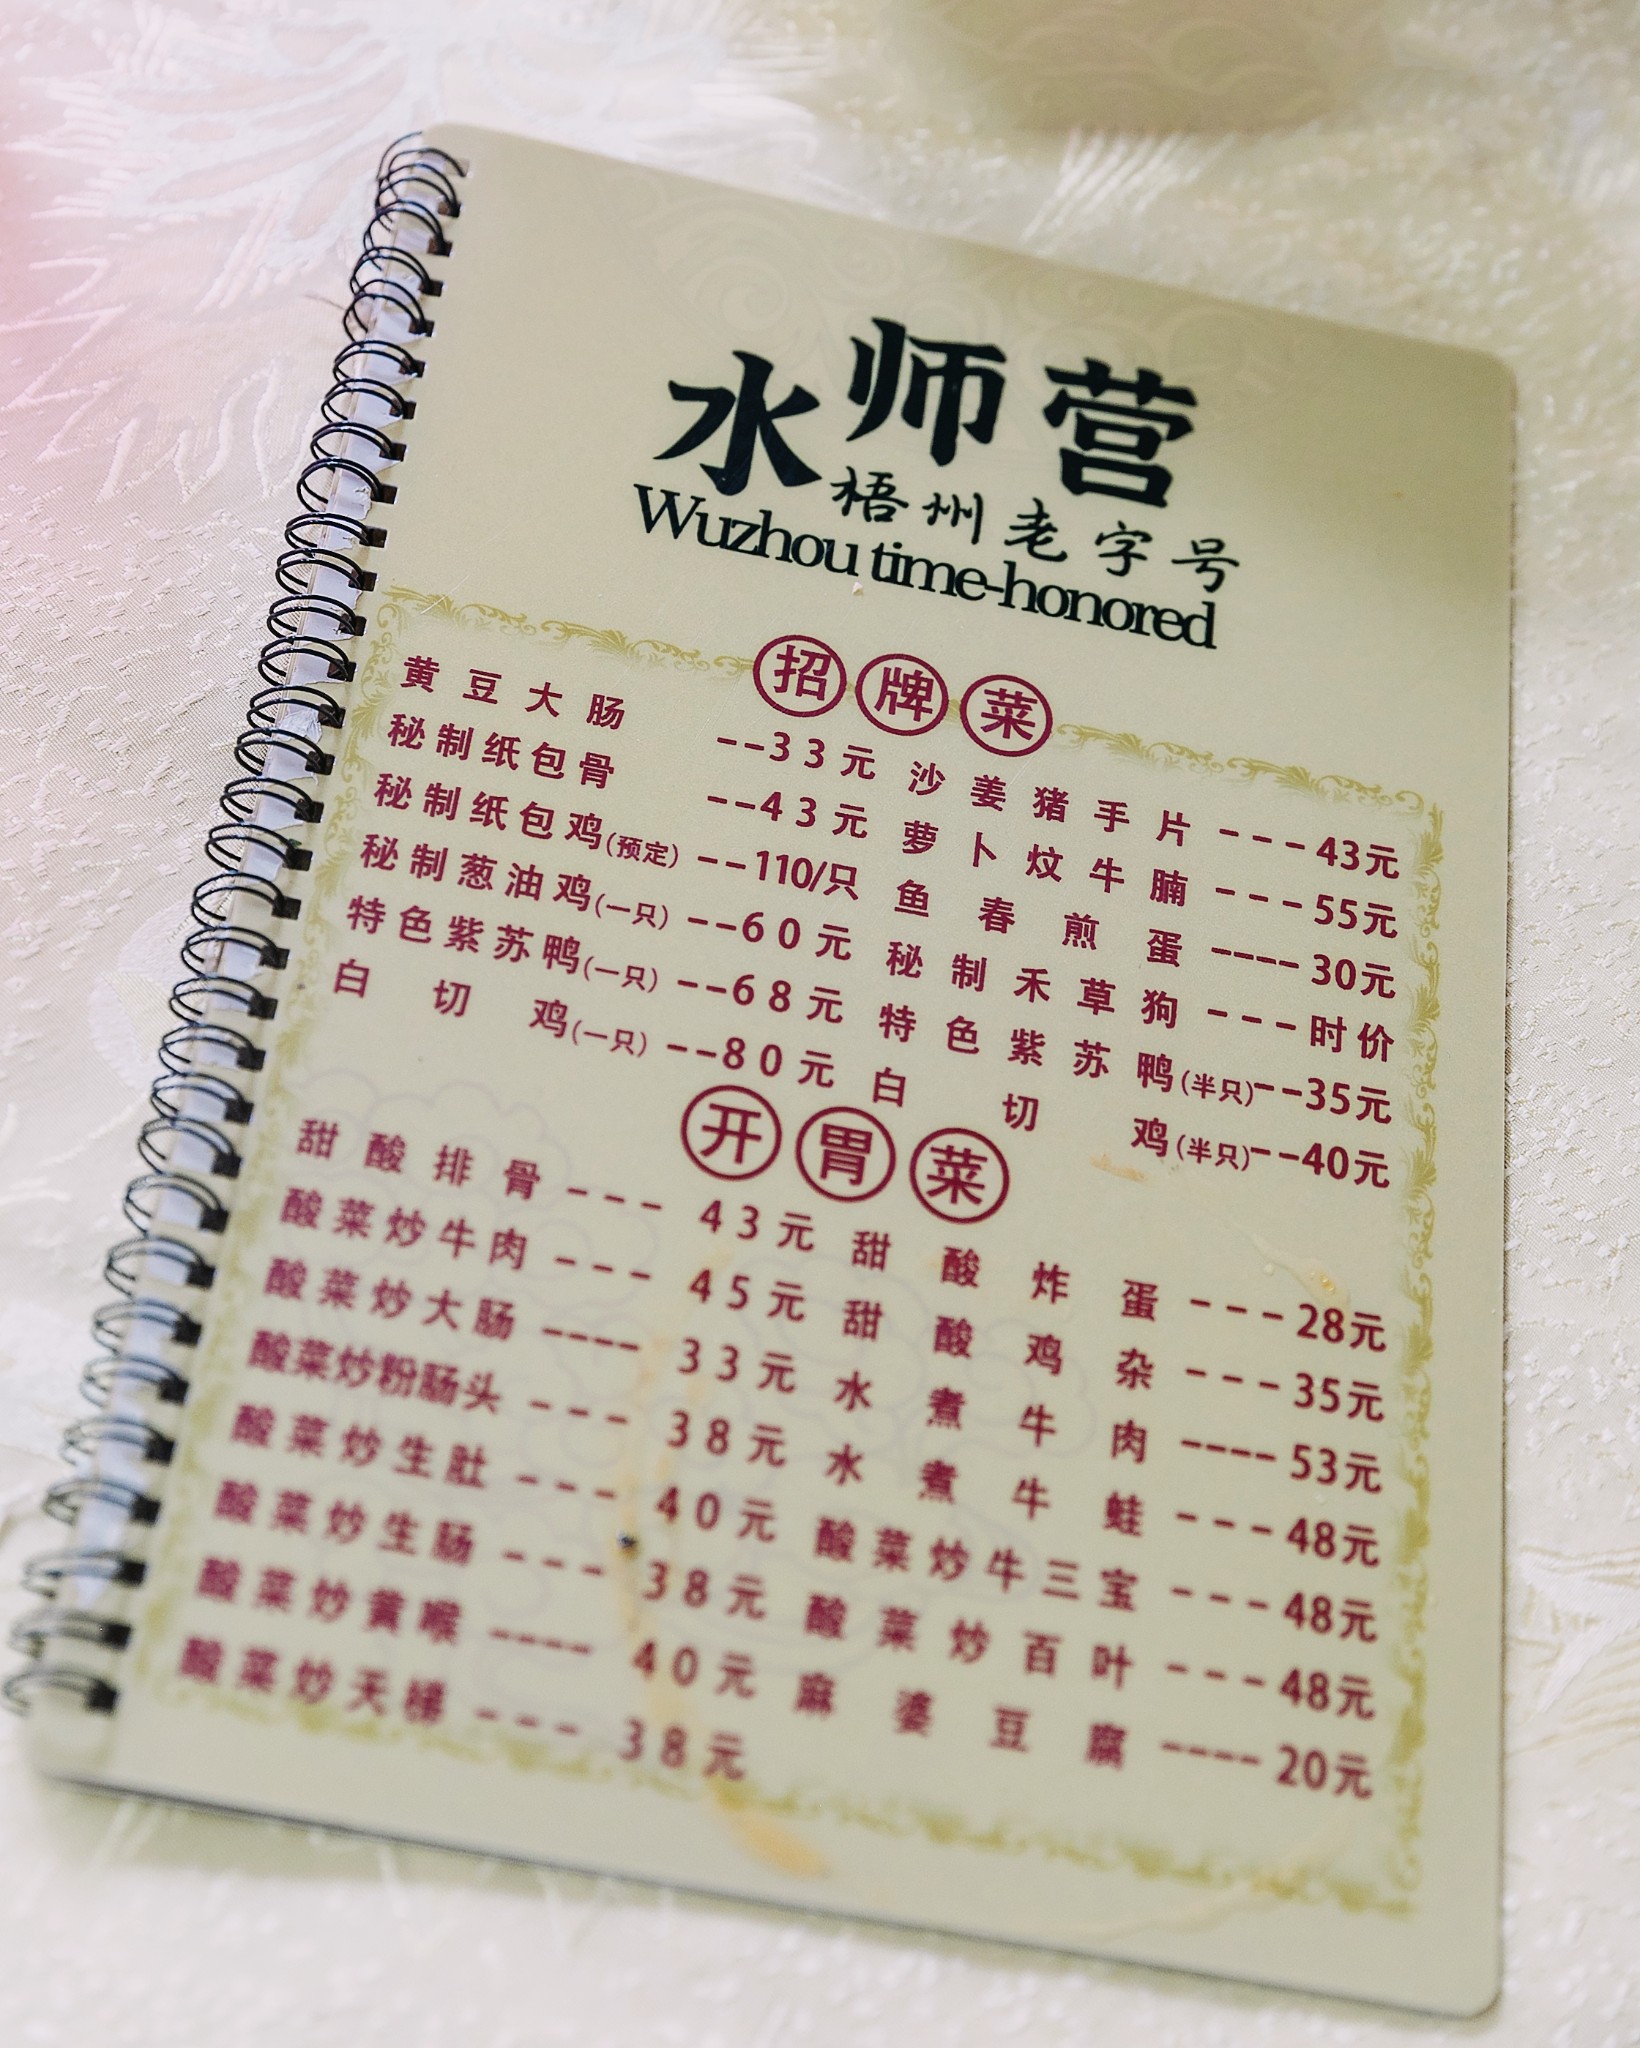 水师营
梧州老字号
Wuzhou time-honored
招牌菜
黄豆大肠 --33元 沙姜猪手片 ---43元
秘制纸包骨 --43元 萝卜炆牛腩 ---55元
秘制纸包鸡(预定) --110/只 鱼春煎蛋 ----30元
秘制葱油鸡(一只) --60元 秘制禾草狗 ---时价
特色紫苏鸭(一只) --68元 特色紫苏鸭(半只)--35元
白切鸡(一只) --80元 白切鸡(半只)--40元
开胃菜
甜酸排骨 --- 43元 甜酸炸蛋 ---28元
酸菜炒牛肉 --- 45元 甜酸鸡杂 ---35元
酸菜炒大肠 ---- 33元 水煮牛肉 ----53元
酸菜炒粉肠头 --- 38元 水煮牛蛙 ---48元
酸菜炒生肚 --- 40元 酸菜炒牛三宝 ---48元
酸菜炒生肠 --- 38元 酸菜炒百叶 ---48元
酸菜炒黄喉 ---- 40元 麻婆豆腐 ----20元
酸菜炒天梯 --- 38元